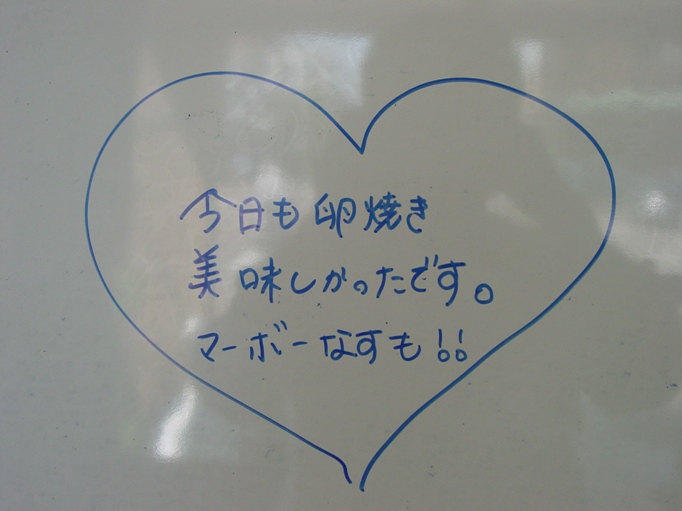 今日も卵焼き
美味しかったです。
マーボーなすも!!